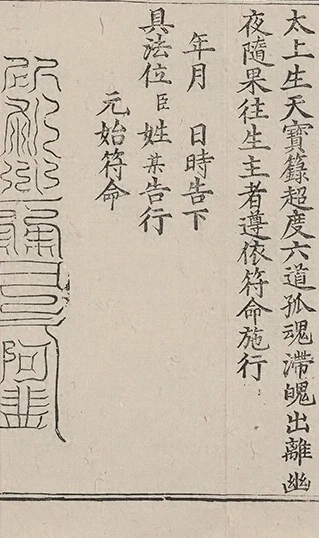 太上生天寶籙超度六道孤魂滯魄出離幽
夜隨果往生主者遵依符命施行
年月 日時告下
具法位臣姓某告行
元始符命
阿韭